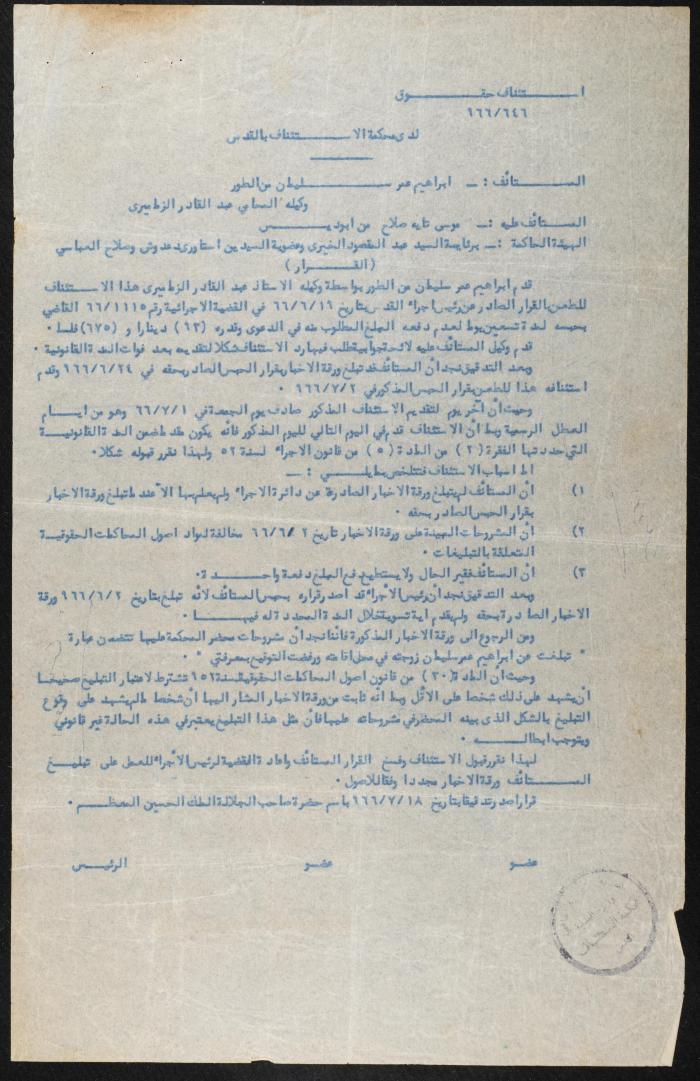 استئناف حقوق
١٦٦/٦٤٦
لدى محكمة الاستئناف بالقدس
المستأنف : ـ ابراهيم عمر سليطان من الطور
وكيله المحامي عبد القادر الزماميري
المستأنف عليه : ـ موسى تايه صلاح من ابوديس
الهيئة الحاكمة : ـ برئاسة السيد عبد المقصود الخيري وعضوية السيدين استاوري دعدوش وصلاح العباسي
( القرار )
قدم ابراهيم عمر سليطان من الطور بواسطة وكيله الاستاذ عبد القادر الزماميري هذا الاستئناف
للطعن بالقرار الصادر عن رئيس اجراء القدس بتاريخ ٦٦/٦/١٦ في القضية الاجرائية رقم ٦٦/١١١٥ القاضي
بحبسه لمدة تسعين يوما لعدم دفعه المبلغ المطلوب منه في الدعوى وقدره (٦٣) دينارا و (٦٧٥) فلسا ٠
قدم وكيل المستأنف عليه لائحة جوابية طلب فيها رد الاستئناف شكلا لتقديمه بعد فوات المدة القانونية ٠
وبعد التدقيق نجد أن المستأنف قد تبلغ ورقة الاخبار بقرار الحبس الصادر بحقه في ١٦٦/٦/٢٤ وقدم
استئنافه هذا للطعن بقرار الحبس المذكور في ٦٦٦/٧/٢ ٠
وحيث أن آخر يوم لتقديم الاستئناف المذكور صادف يوم الجمعة في ٦٦/٧/١ وهو من ايام
العطل الرسمية وبما أن الاستئناف قدم في اليوم التالي لليوم المذكور فأنه يكون مقدما ضمن المدة القانونية
التي حددتها الفقرة (٢) من المادة (٥) من قانون الاجراء لسنة ٥٢ ولهذا نقرر قبوله شكلا٠
اما اسباب الاستئناف فتتلخص بما يلي : ـ
١) أن المستأنف لم يتبلغ ورقة الاخبار الصادرة عن دائرة الاجراء ولم يعلم بها الا عندما تبلغ ورقة الاخبار
بقرار الحبس الصادر بحقه ٠
٢) أن الشروحات المبينة على ورقة الاخبار تاريخ ٦٦/٦/٢ مخالفة لمواد اصول المحاكمات الحقوقية
المتعلقة بالتبليغات ٠
٣) أن المستأنف فقير الحال ولا يستطيع دفع المبلغ دفعة واحدة ٠
وبعد التدقيق نجد أن رئيس الأجراء قد اصدر قراره بحبس المستأنف لأنه تبلغ بتاريخ ١٦٦/٦/٢ ورقة
الاخبار الصادرة بحقه ولم يقدم اية تسوية خلال المدة المحددة له فيها ٠
ومن الرجوع الى ورقة الاخبار المذكورة فأننا نجد أن مشروحات محضر المحكمة عليها تتضمن عبارة
" تبلغت عن ابراهيم عمر سليطان زوجته في محل اقامته ورفضت التوقيع بمعرفتي " ٠
وحيث أن المادة (٣٠) من قانون اصول المحاكمات الحقوقية لسنة ١٥٢ تشترط لاعتبار التبليغ صحيحا
أن يشهد على ذلك شخصا على الاقل وبما انه ثابت من ورقة الاخبار المشار اليها أن شخصا ما لم يشهد على وقوع
التبليغ بالشكل الذي بينه المحضر في مشروحاته عليها فأن مثل هذا التبليغ يعتبر في هذه الحالة غير قانوني
ويتوجب ابطاله ٠
لهذا نقرر قبول الاستئناف وفسخ القرار المستأنف واعادة القضية لرئيس الأجراء للعمل على تبليغ
المستأنف ورقة الاخبار مجددا وفقا للاصول ٠
قرارا صدر تدقيقا بتاريخ ٦٦٦/٧/١٨ باسم حضرة صاحب الجلالة الملك الحسين المعظم ٠
عضو عضو الرئيس